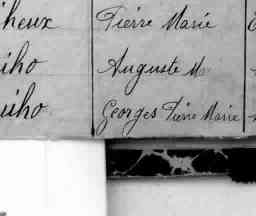 heux Pierre Marie
iho Auguste M
uiho Georges Pierre Marie